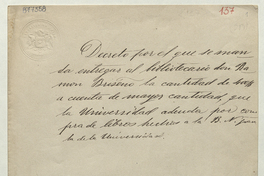 157
Decreto por el que se man
da entregar al bibliotecario don Ra
mon Briseño la cantidad de
a cuenta de mayor cantidad, que
la Universidad adeuda por com
pra de libros hechos a la B. N. 
la de la Universidad.